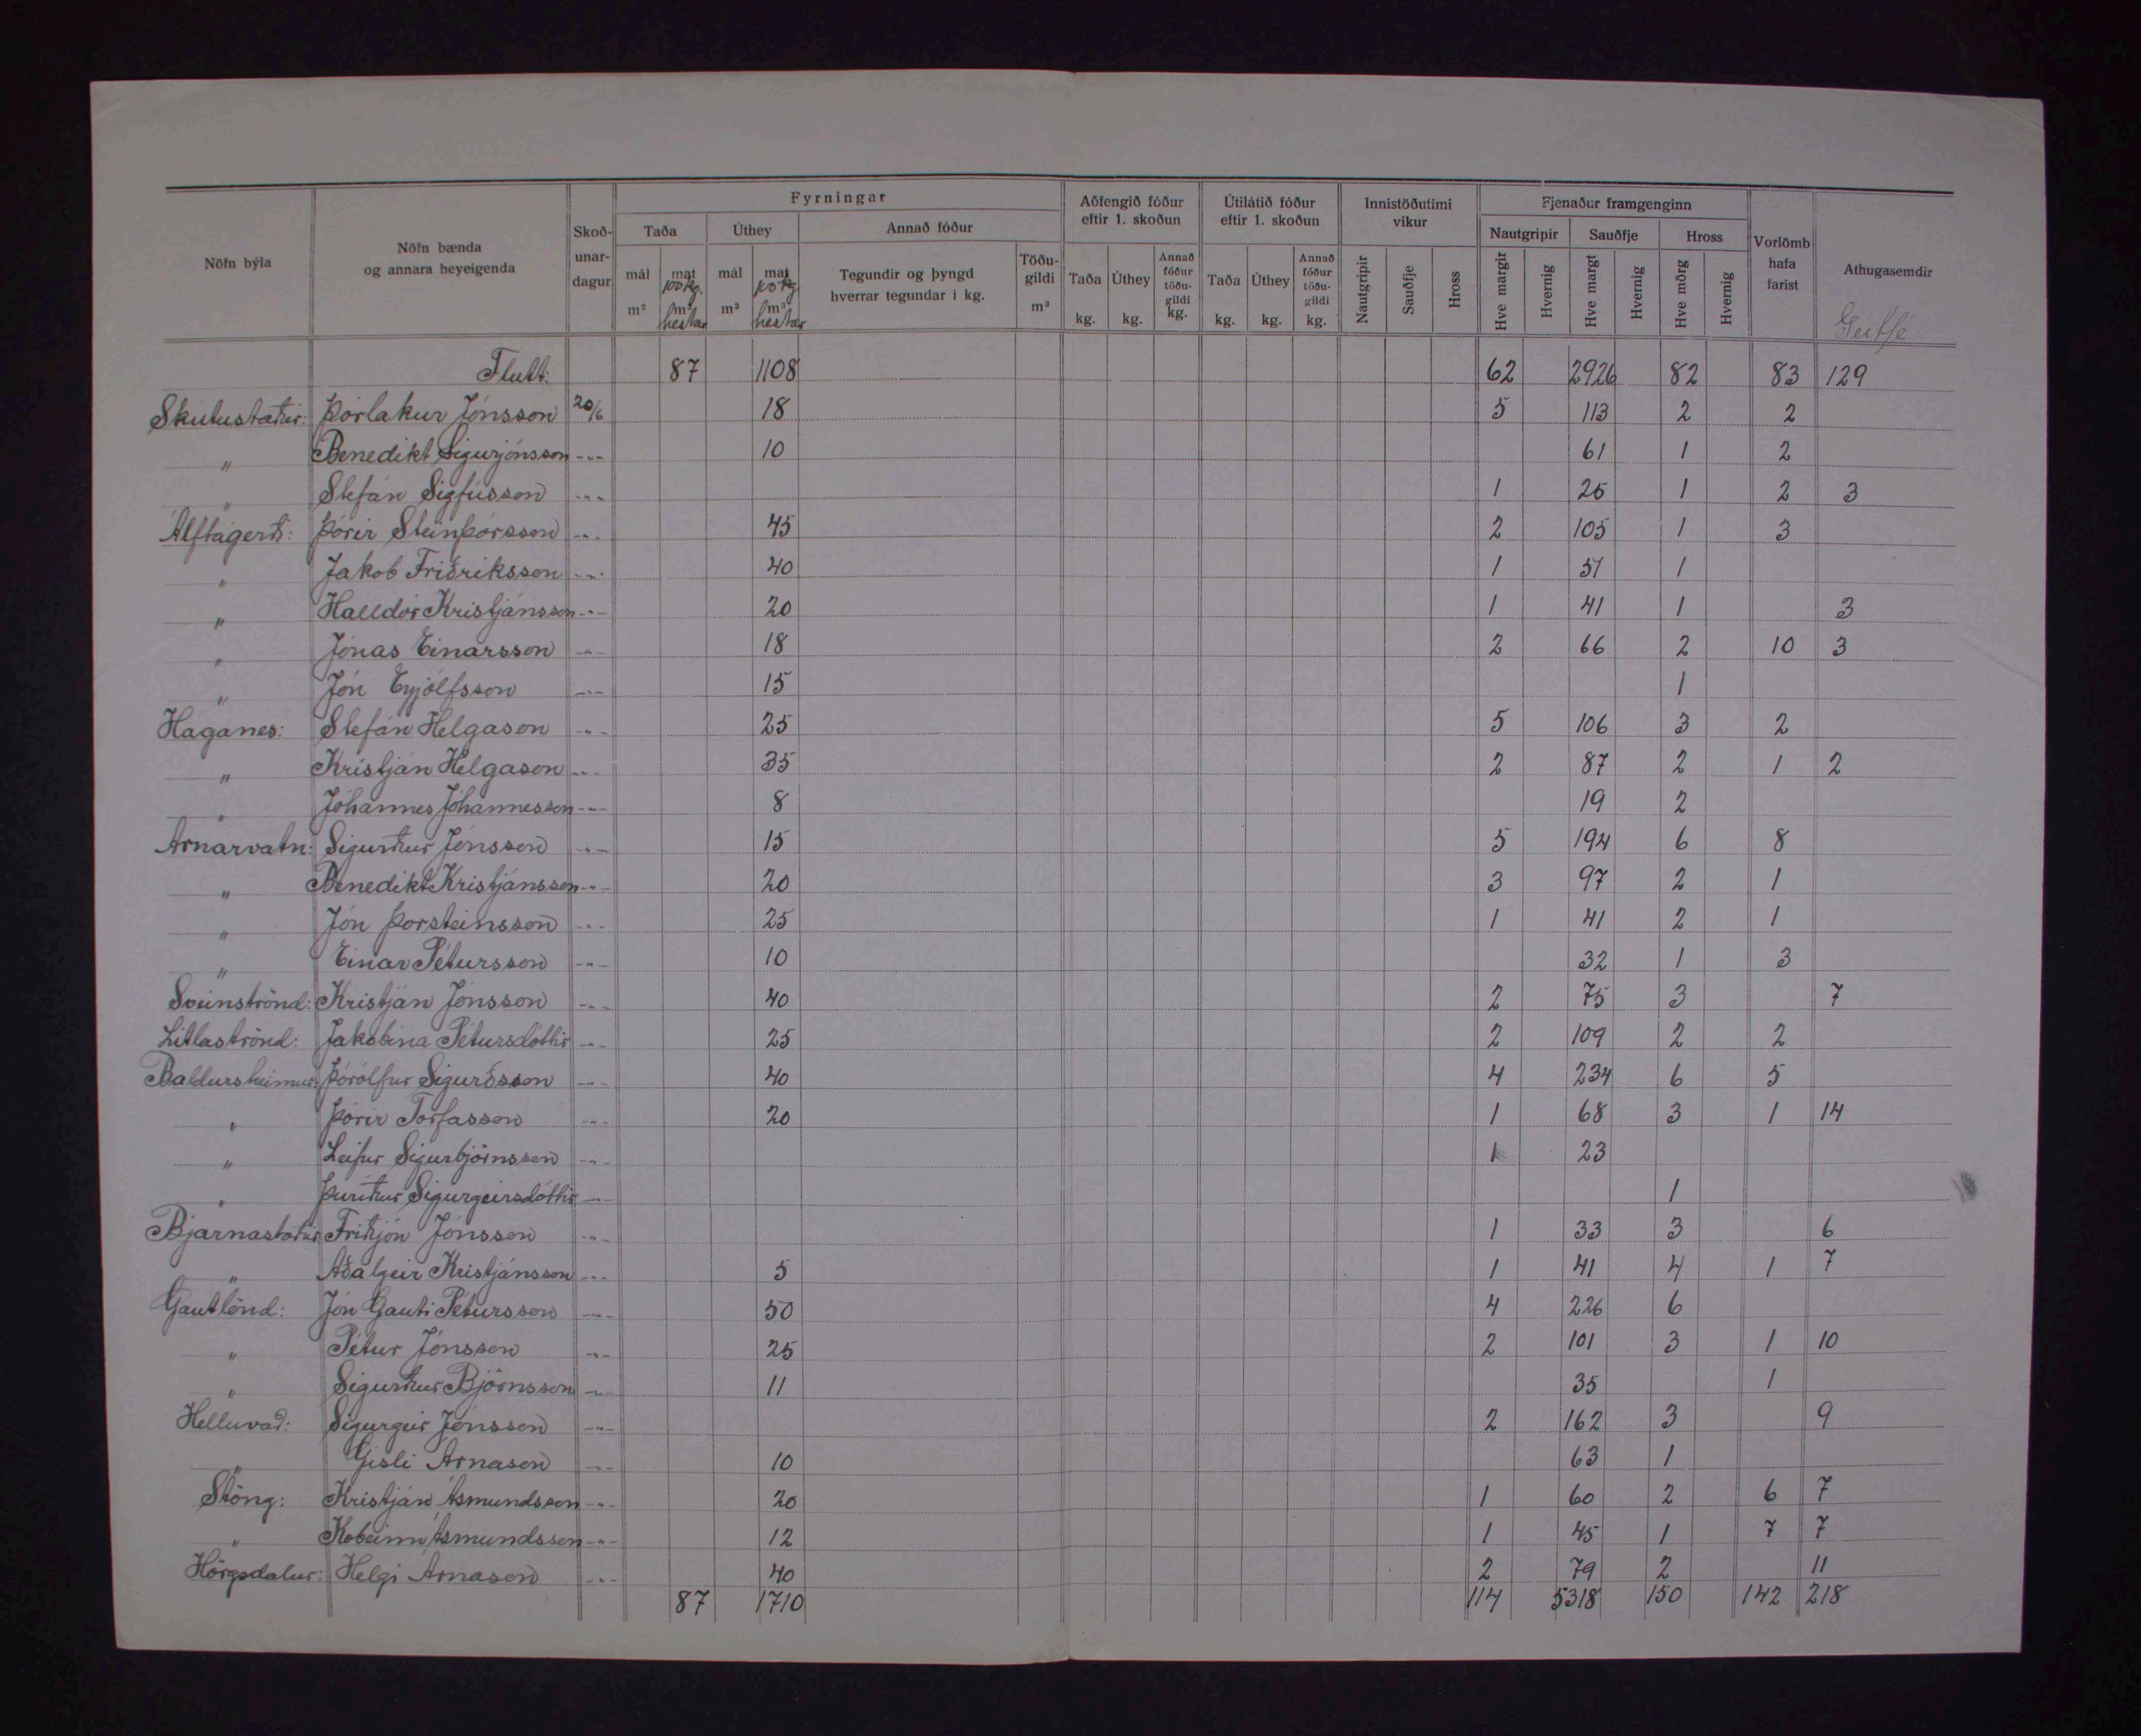 Fyrningar
Aðfengið fóður eftir 1. skoðun
Útilátið fóður eftir 1. skoðun
Innistöðutími vikur
Fjenaður framgenginn
Nöfn býla
Nöfn bænda og annara heyeigenda
Skoð-unar-dagur
Taða
Úthey
Annað fóður
Nautgripir
Sauðfje
Hross
Vorlömb hafa farist
Athugasemdir
mál m³
mat 100 kg. m³ hestar
mál m³
mat 100 kg m³ hestar
Tegundir og þyngd hverrar tegundar í kg.
Töðu-gildi m³
Taða kg.
Úthey kg.
Annað fóður töðu-gildi kg.
Taða kg.
Úthey kg.
Annað fóður töðu-gildi kg.
Nautgripir
Sauðfje
Hross
Hve margir
Hvernig
Hve margt
Hvernig
Hve mörg
Hvernig
Geitfé
Flutt: 87 1108 62 2926 82 83 129
Skútustaðir: Þorlákur Jónsson 20/6 18 5 113 2 2
" Benedikt Sigurjónsson -"- 10 61 1 2
" Stefán Sigfússon -"- 1 25 1 2 3
Álftagerði: Þórir Steinþórsson -"- 45 2 105 1 3
" Jakob Friðriksson -"- 40 1 51 1
" Halldór Kristjánsson -"- 20 1 41 1 3
" Jónas Einarsson -"- 18 2 66 2 10 3
" Jón Eyjólfsson -"- 15 1
Haganes: Stefán Helgason -"- 25 5 106 3 2
" Kristján Helgason -"- 35 2 87 2 1 2
" Jóhannes Jóhannesson -"- 8 19 2
Arnarvatn: Sigurður Jónsson -"- 15 5 194 6 8
" Benedikt Kristjánsson -"- 20 3 97 2 1
" Jón Þorsteinsson -"- 25 1 41 2 1
" Einar Pétursson -"- 10 32 1 3
Sveinströnd: Kristján Jónsson -"- 40 2 75 3 7
Litlaströnd: Jakobína Pétursdóttir -"- 25 2 109 2 2
Baldursheimur: Þórólfur Sigurðsson -"- 40 4 234 6 5
" Þórir Torfasson -"- 20 1 68 3 1 14
" Leifur Sigurbjörnsson -"- 1 23
" Þuríður Sigurgeirsdóttir -"- 1
Bjarnastaðir Friðjón Jónsson -"- 1 33 3 6
" Aðalgeir Kristjánsson -"- 5 1 41 4 1 7
Gautlönd: Jón Gauti Pétursson -"- 50 4 226 6
" Pétur Jónsson -"- 25 2 101 3 1 10
" Sigurður Björnsson -"- 11 35 1
Helluvað: Sigurgeir Jónsson -"- 2 162 3 9
" Gísli Árnason -"- 10 63 1
Stöng: Kristján Ásmundsson -"- 20 1 60 2 6 7
" Kobeinn Ásmundsson -"- 12 1 45 1 7 7
Hörgsdalur: Helgi Árnason -"- 40 2 79 2 11
87 1710 114 5318 150 142 218